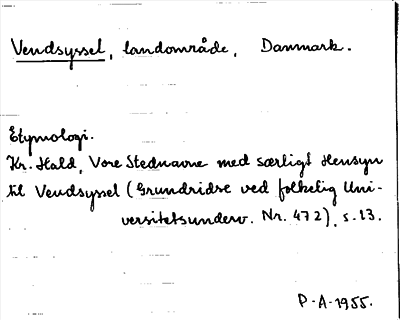 Vendsyssel, landområde, Danmark.
Etymologi.
Kr. Hald, Vore Stednavne med særligt Hensyn
til Vendsyssel (Grundridse ved folkelig Uni-
versitetsunderv. Nr. 472), s. 13.
P-A-1955.